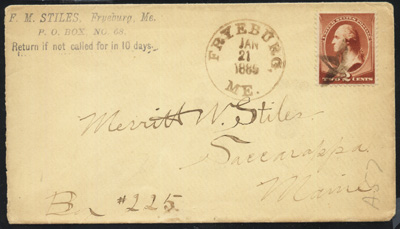 F. M. STILES, Fryeburg, Me.
P. O. BOX, NO. 68.
Return if not called for in 10 days.
FRYEBURG,
JAN
21
1885
ME.
TWO 2 CENTS
Merritt W. Stiles
Saccarappa
Maine
B #225